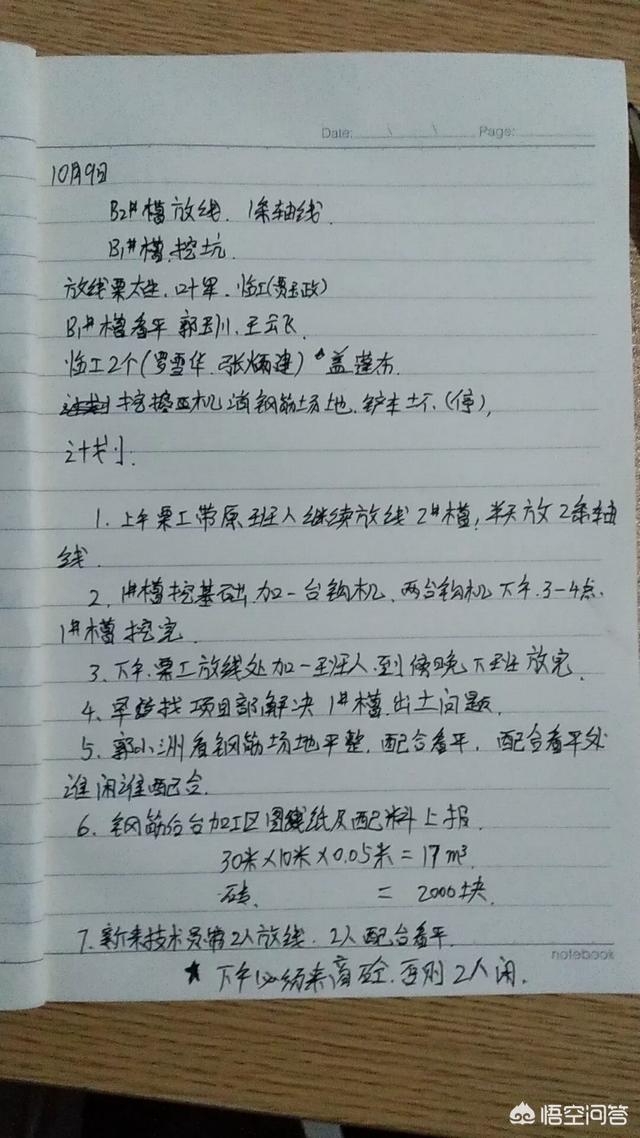 Date: \ \ Page:
10月9日
B2#槽放线. 1条轴线.
B1#槽.挖坑.
放线栗太生.叶军.临工(贾玉政)
B1#槽看平 郭玉川.王云飞.
临工2个(罗雪华.张炳建) 盖蓬布.
挖机 钢筋场地.铲车 坏.(停),
计划:
1. 上午栗工带原班人继续放线2#槽,半天放2条轴
线.
2. 1#槽挖基础.加一台钩机.两台钩机下午.3-4点.
1#槽挖完.
3. 下午.栗工放线处加一班人.到傍晚下班放完.
4. 早 找项目部解决1#槽.出土问题.
5. 郭小洲看钢筋场地平整.配合看平. 配合看平处
谁闲谁配合.
6. 钢筋后台加工区图纸及配料上报.
30米×10米×0.05米=17m³.
砖. = 2000块.
7. 新来技术员.带2人放线. 2人配合看平.
★ 下午必须来商砼.否则2人闲.
notebook
悟空问答